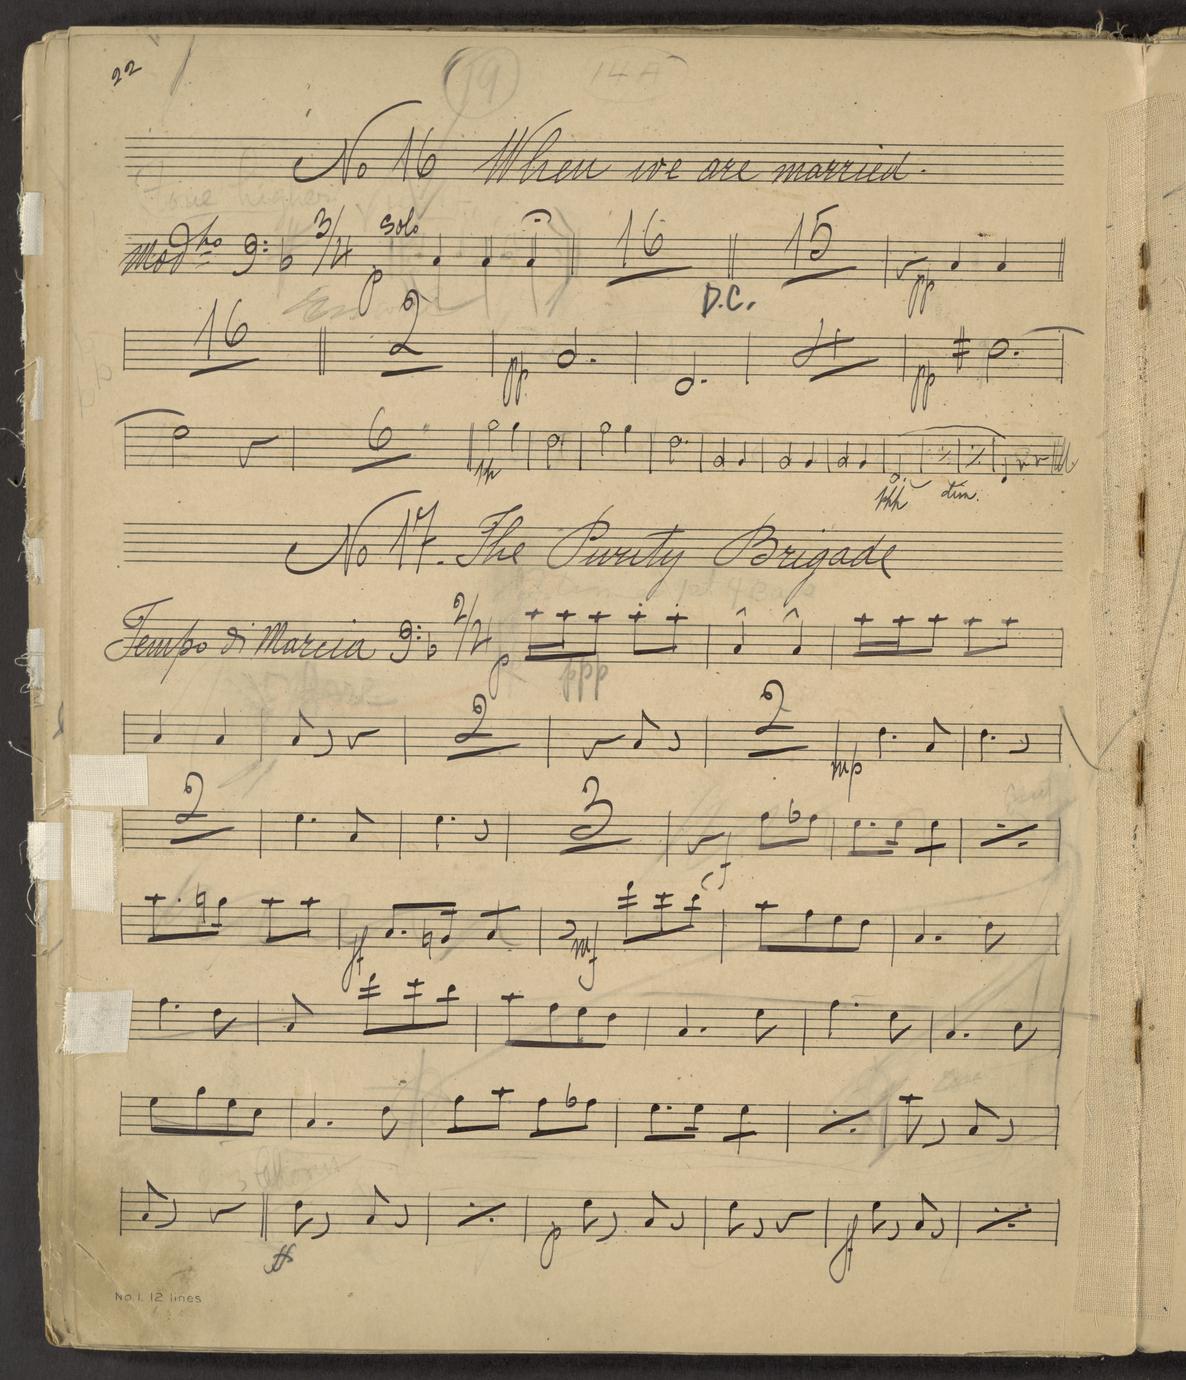 22
19 14A
No 16 When we are married.
Tone higher
Mod to 3/4 Solo 16 15
p D.C. pp
16 2 4
pp pp
6
pp ppp dim.
No 17. The Purity Brigade
Tempo di Marcia 2/4
p ppp
2 2
mp
2 3
f
ff mf
3
p f
No. 1. 12 lines